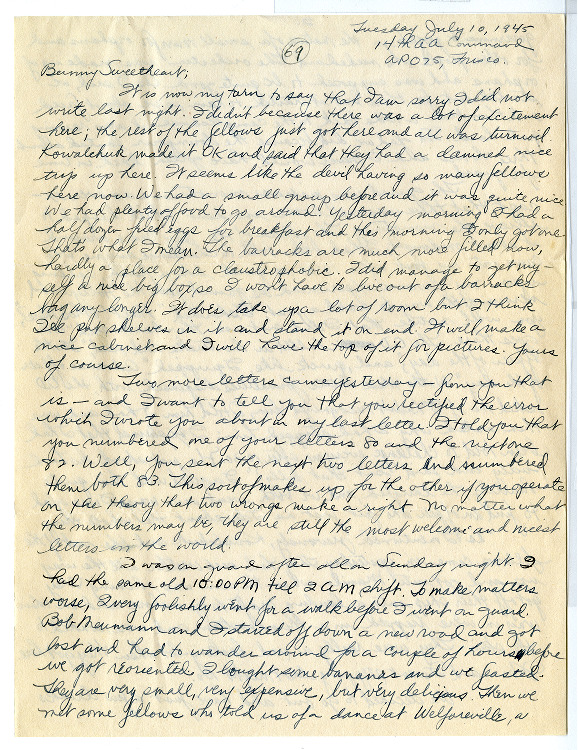 Tuesday July 10, 1945
69
14th AA Command
APO 75, Frisco.
Bunny Sweetheart;
It is now my turn to say that I am sorry I did not
write last night. I didn't because there was a lot of excitement
here; the rest of the fellows just got here and all was turmoil
Kowalchuk made it OK and said that they had a damned nice
trip up here. It seems like the devil having so many fellows
here now. We had a small group before and it was quite nice
We had plenty of food to go around. Yesterday morning I had a
half dozen fried eggs for breakfast and this morning I only got one
That's what I mean. The barracks are much more filled now,
hardly a place for a claustrophobic. I did manage to get my-
self a nice big box, so I won't have to live out of a barracks
bag any longer. It does take up a lot of room but I think
I'll put shelves in it and stand it on end. It will make a
nice cabinet and I will have the top of it for pictures. Yours
of course.
Two more letters came yesterday - from you that
is - and I want to tell you that you rectified the error
which I wrote you about in my last letter. I told you that
you numbered one of your letters 80 and the next one
82. Well, you sent the next two letters and numbered
them both 83. This sort of makes up for the other if you operate
on the theory that two wrongs make a right. No matter what
the numbers may be, they are still the most welcome and nicest
letters in the world.
I was on guard after all on Sunday night. I
had the same old 10:00 PM till 2 AM shift. To make matters
worse, I very foolishly went for a walk before I went on guard.
Bob Neumann and I started off down a new road and got
lost and had to wander around for a couple of hours before
we got reoriented. I bought some bananas and we feasted.
They are very small, very expensive, but very delicious. Then we
met some fellows who told us of a dance at Welfareville, a